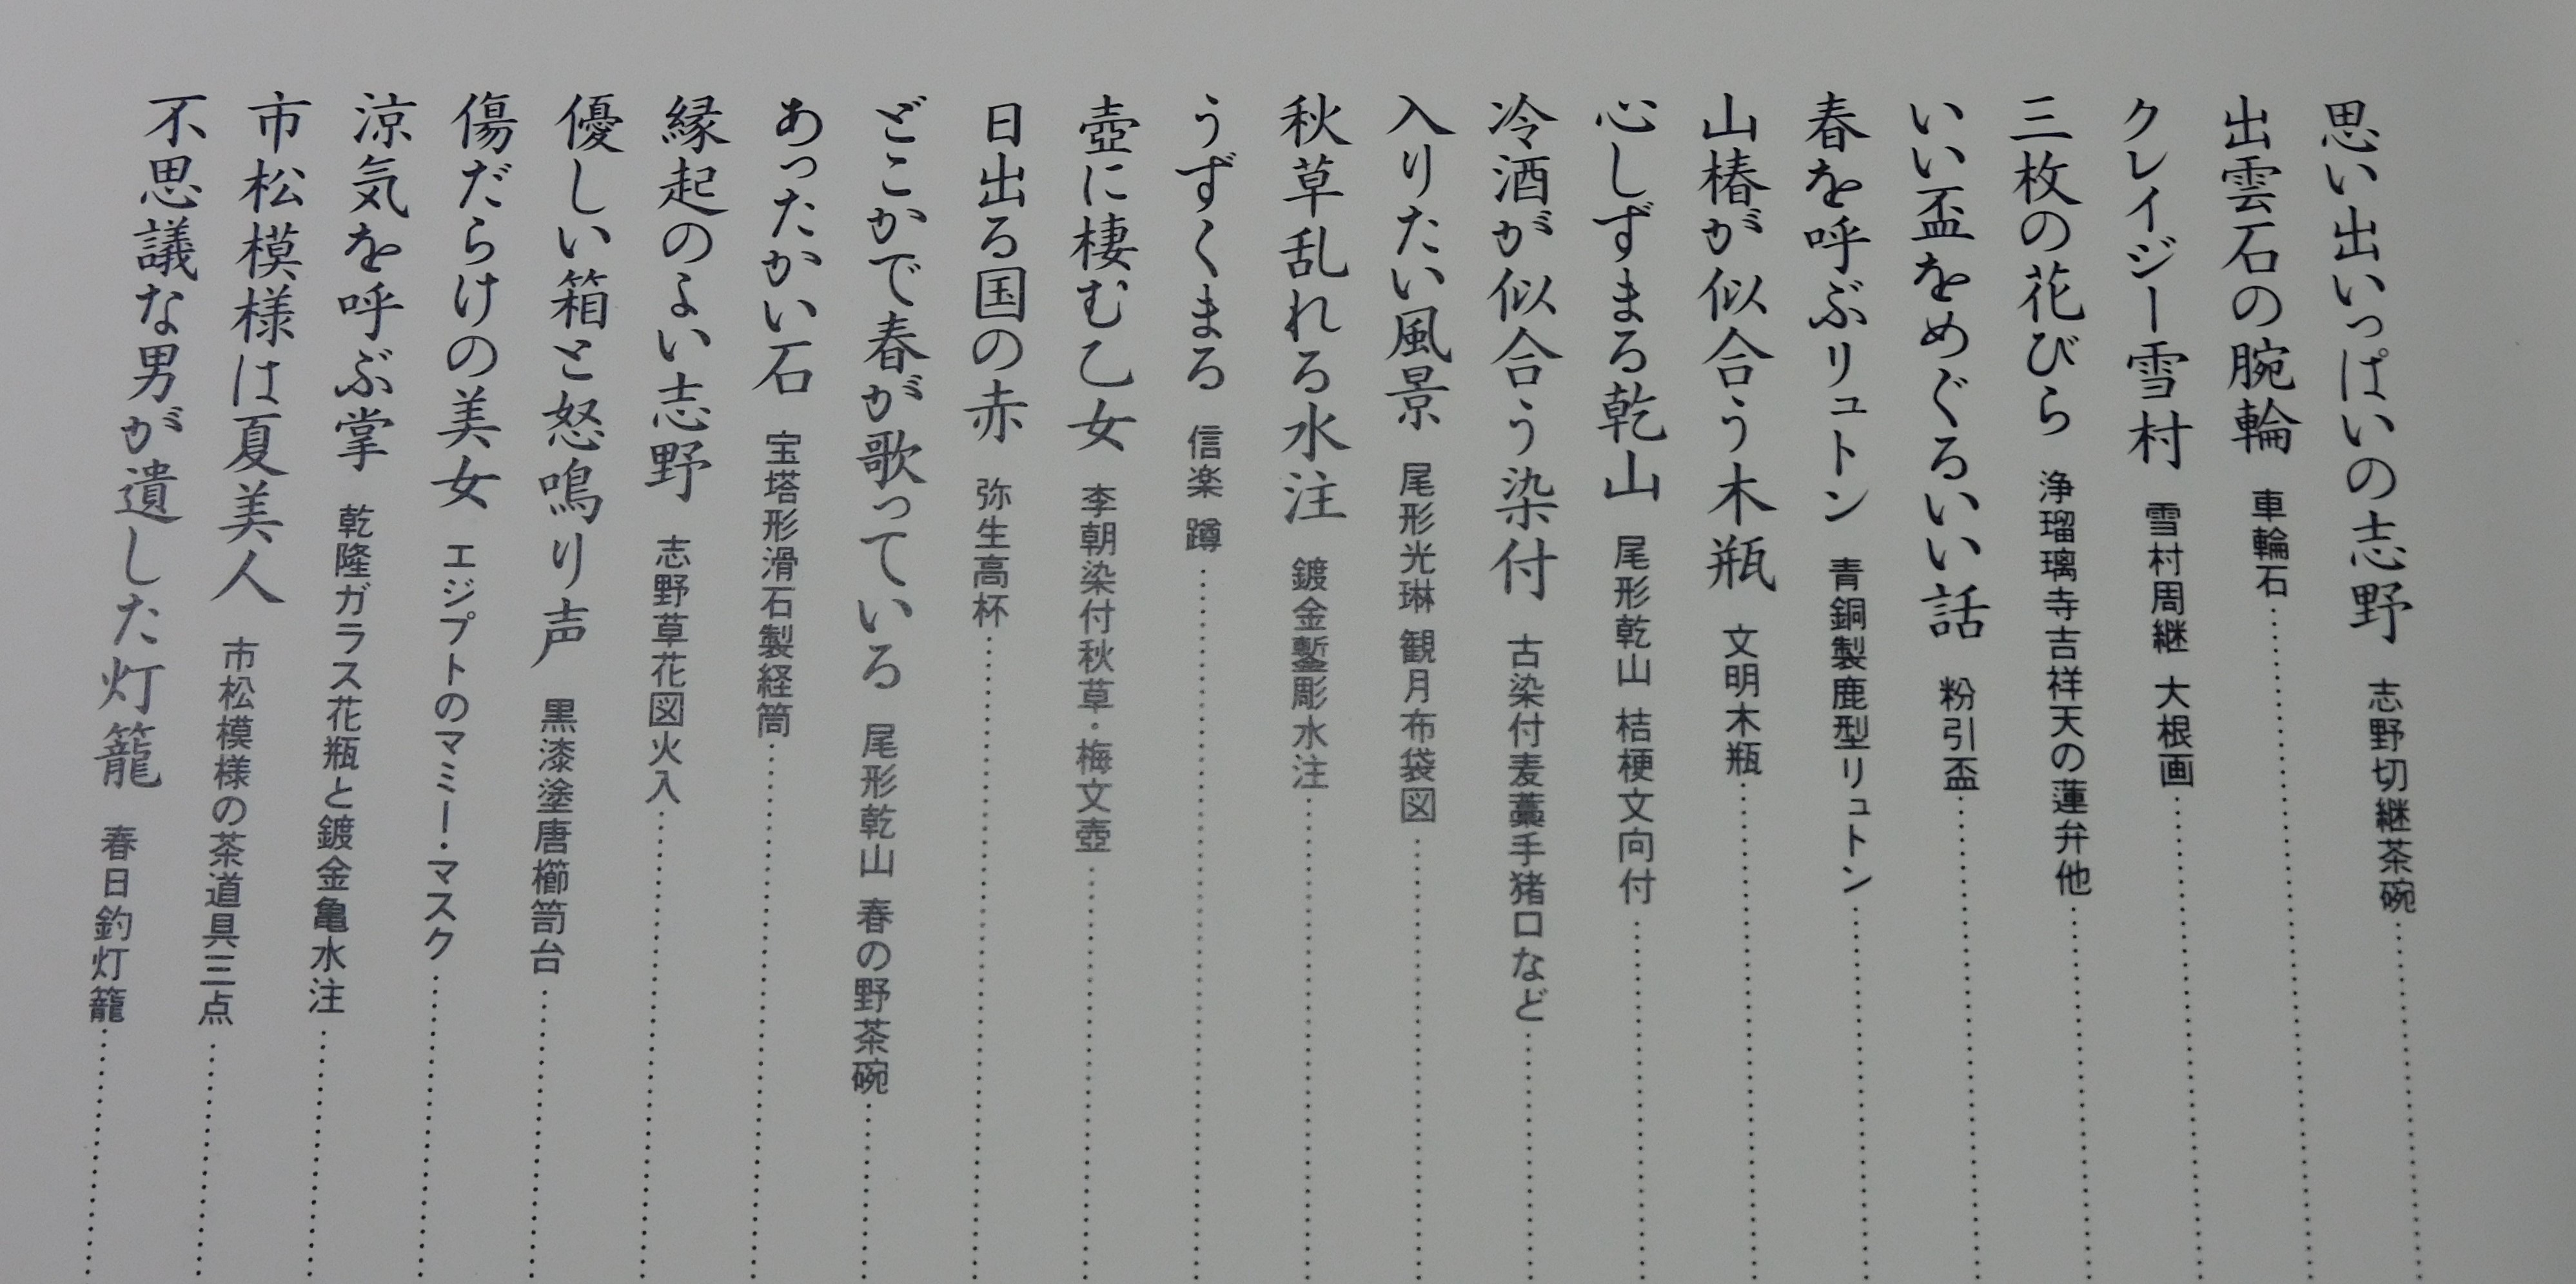 思い出いっぱいの志野 志野切継茶碗
出雲石の腕輪 車輪石
クレイジー雪村 雪村周継 大根画
三枚の花びら 浄瑠璃寺吉祥天の蓮弁他
いい盃をめぐるいい話 粉引盃
春を呼ぶリュトン 青銅製鹿型リュトン
山椿が似合う木瓶 文明木瓶
心しずまる乾山 尾形乾山 桔梗文向付
冷酒が似合う染付 古染付麦藁手猪口など
入りたい風景 尾形光琳 観月布袋図
秋草乱れる水注 鍍金鏨彫水注
うずくまる 信楽 蹲
壺に棲む乙女 李朝染付秋草・梅文壺
日出る国の赤 弥生高杯
どこかで春が歌っている 尾形乾山 春の野茶碗
あったかい石 宝塔形滑石製経筒
縁起のよい志野 志野草花図火入
優しい箱と怒鳴り声 黒漆塗唐櫛笥台
傷だらけの美女 エジプトのマミー・マスク
涼気を呼ぶ掌 乾隆ガラス花瓶と鍍金亀水注
市松模様は夏美人 市松模様の茶道具三点
不思議な男が遺した灯籠 春日釣灯籠